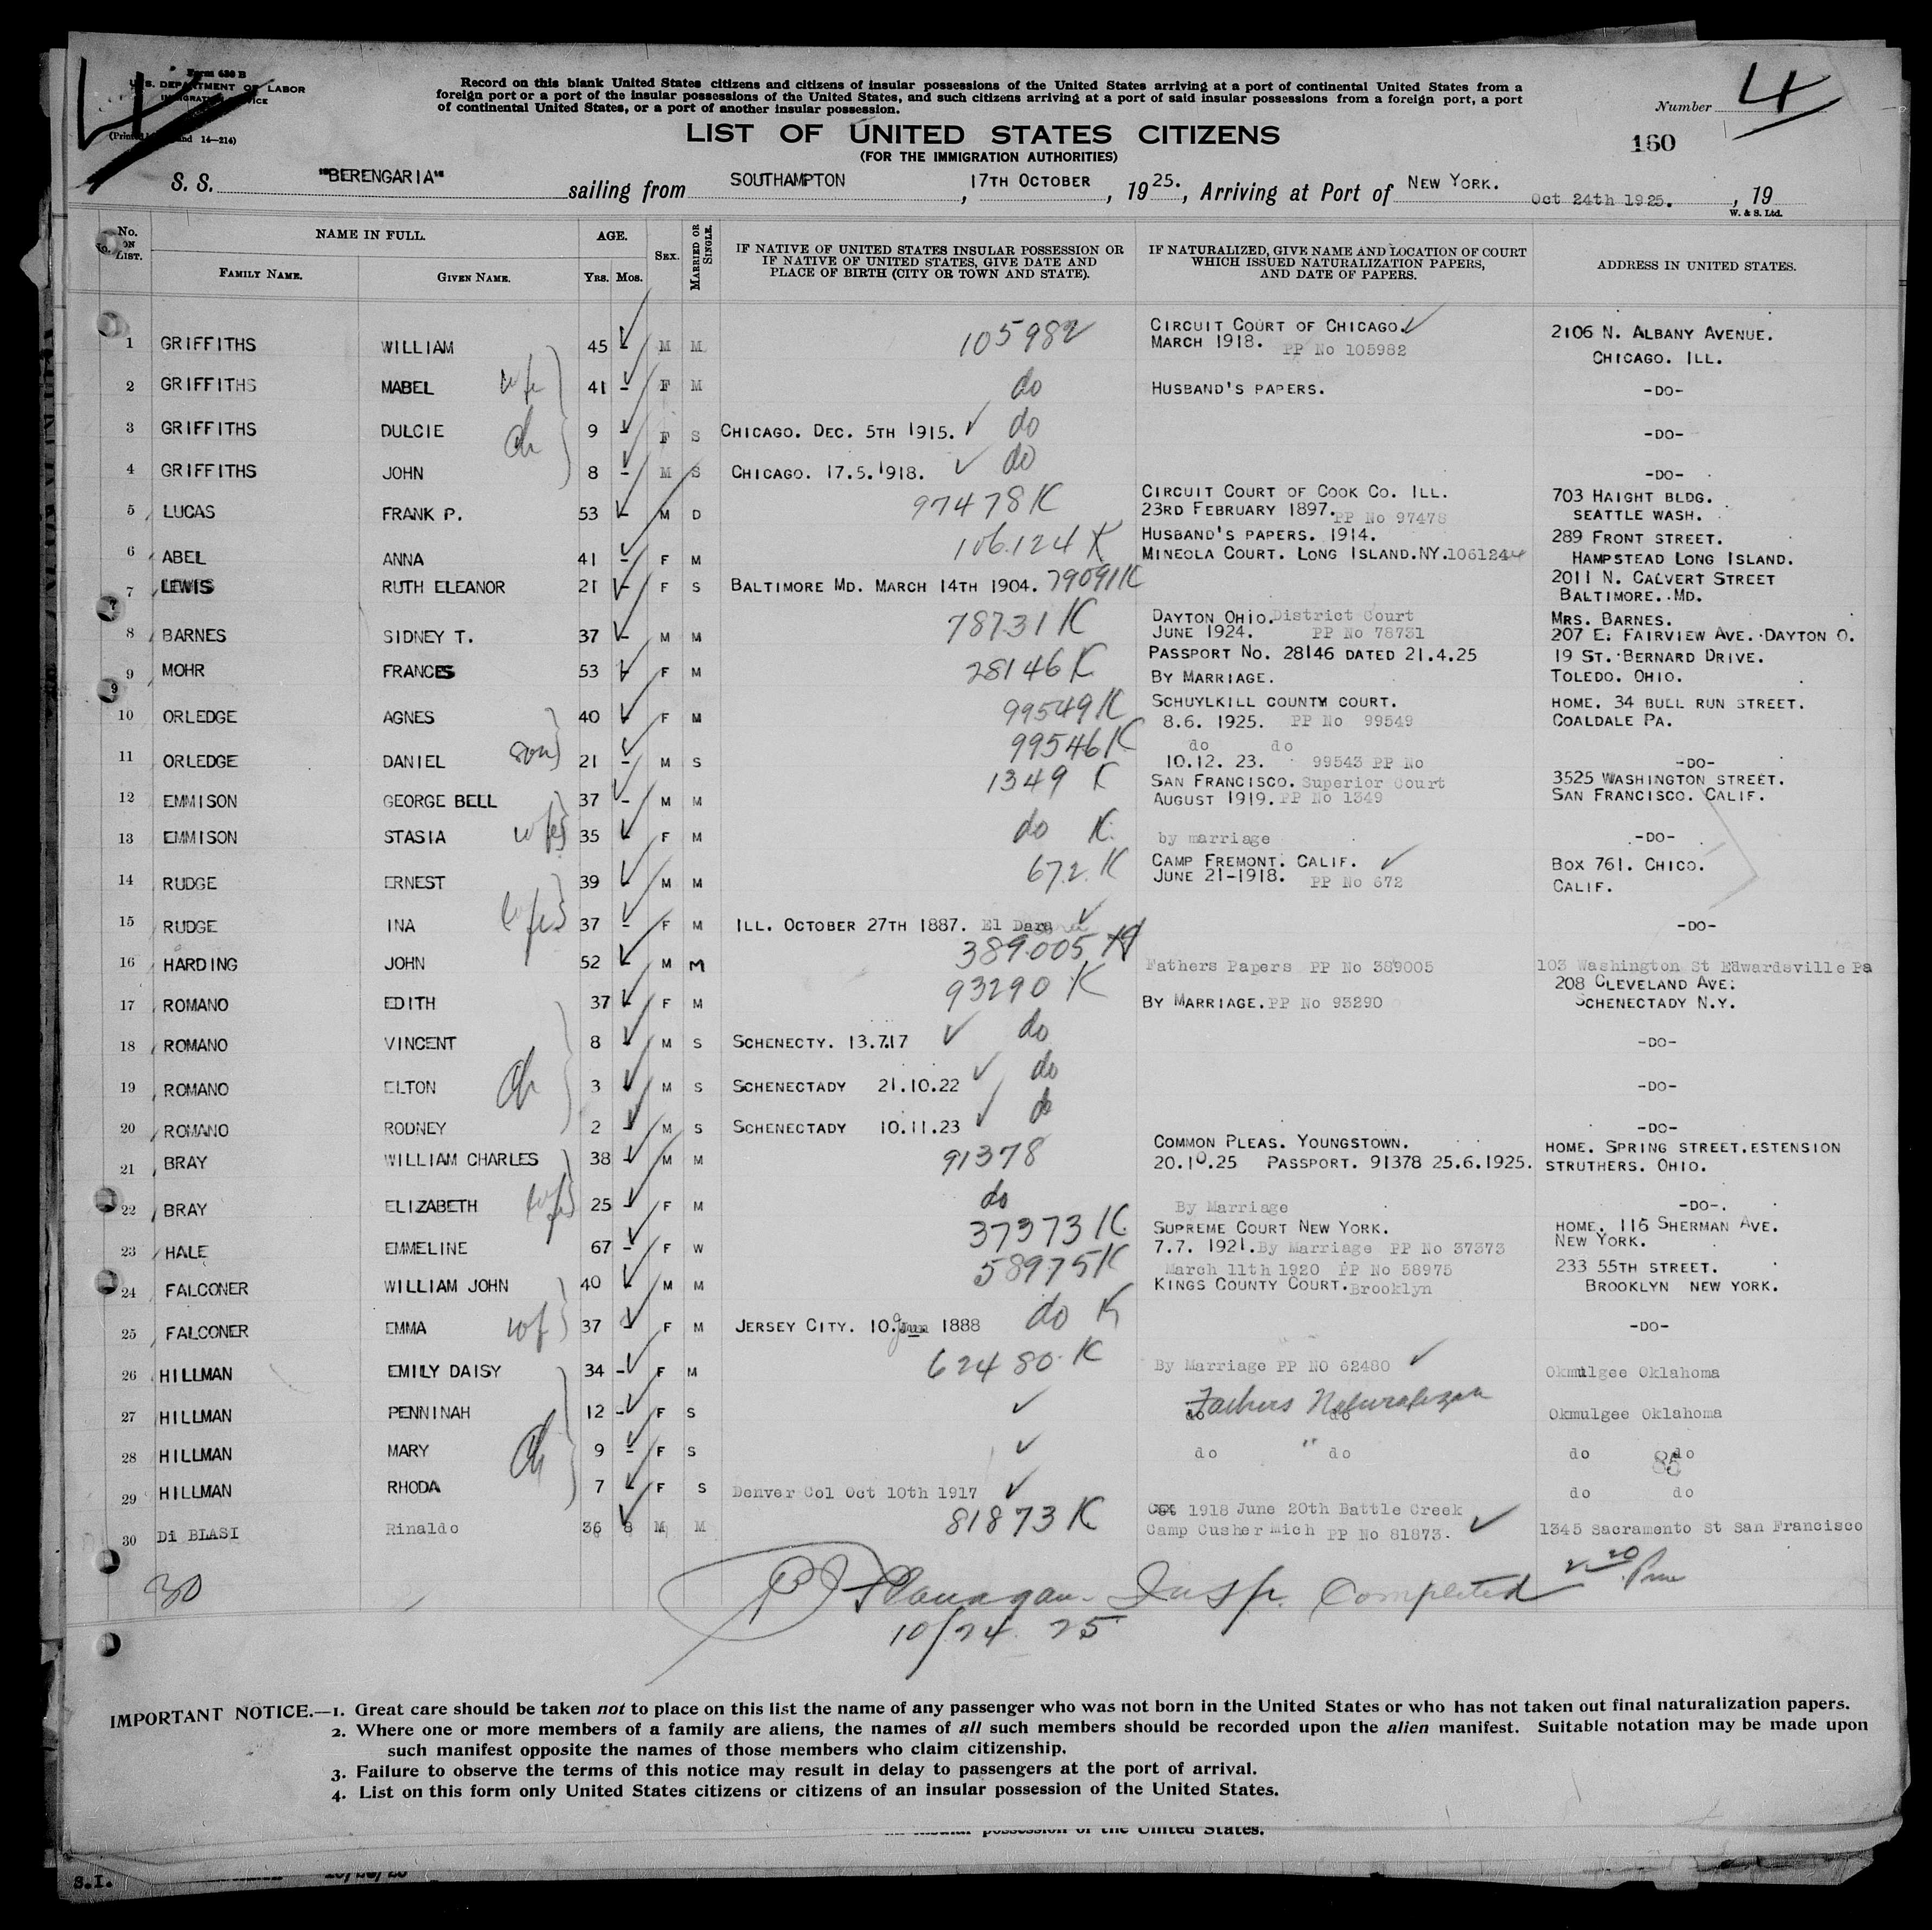 Form 630 B
U.S. DEPARTMENT OF LABOR
IMMIGRATION SERVICE
4
Record on this blank United States citizens and citizens of insular possessions of the United States arriving at a port of continental United States from a
foreign port or a port of the insular possessions of the United States, and such citizens arriving at a port of said insular possessions from a foreign port, a port
of continental United States, or a port of another insular possession.
Number 4
LIST OF UNITED STATES CITIZENS
(FOR THE IMMIGRATION AUTHORITIES)
160
S. S. "BERENGARIA" sailing from SOUTHAMPTON, 17TH OCTOBER, 1925., Arriving at Port of NEW YORK. Oct 24th 1925., 19
W. & S. Ltd.
No. ON LIST. NAME IN FULL. AGE. SEX. MARRIED OR SINGLE. IF NATIVE OF UNITED STATES INSULAR POSSESSION OR IF NATIVE OF UNITED STATES, GIVE DATE AND PLACE OF BIRTH (CITY OR TOWN AND STATE). IF NATURALIZED, GIVE NAME AND LOCATION OF COURT WHICH ISSUED NATURALIZATION PAPERS, AND DATE OF PAPERS. ADDRESS IN UNITED STATES.
FAMILY NAME. GIVEN NAME. YRS. MOS.
1 GRIFFITHS WILLIAM 45 - M M 105982 CIRCUIT COURT OF CHICAGO. MARCH 1918. PP No 105982 2106 N. ALBANY AVENUE. CHICAGO. ILL.
2 GRIFFITHS MABEL wife 41 - F M do HUSBAND'S PAPERS. -DO-
3 GRIFFITHS DULCIE ch 9 - F S CHICAGO. DEC. 5TH 1915. do -DO-
4 GRIFFITHS JOHN 8 - M S CHICAGO. 17.5.1918. do -DO-
5 LUCAS FRANK P. 53 - M D 97478 K CIRCUIT COURT OF COOK CO. ILL. 23RD FEBRUARY 1897. PP No 97478 703 HAIGHT BLDG. SEATTLE WASH.
6 ABEL ANNA 41 - F M 106124 K HUSBAND'S PAPERS. 1914. MINEOLA COURT. LONG ISLAND.NY. 289 FRONT STREET. HAMPSTEAD LONG ISLAND.
7 LEWIS RUTH ELEANOR 21 - F S BALTIMORE MD. MARCH 14TH 1904. 79091 K 2011 N. CALVERT STREET BALTIMORE. MD.
8 BARNES SIDNEY T. 37 - M M 78731 K DAYTON OHIO. District Court JUNE 1924. PP No 78731 MRS. BARNES. 207 E. FAIRVIEW AVE. DAYTON O.
9 MOHR FRANCES 53 - F M 28146 K PASSPORT NO. 28146 DATED 21.4.25 BY MARRIAGE. 19 ST. BERNARD DRIVE. TOLEDO. OHIO.
10 ORLEDGE AGNES 40 - F M 99549 K SCHUYLKILL COUNTY COURT. 8.6. 1925. PP No 99549 HOME. 34 BULL RUN STREET. COALDALE PA.
11 ORLEDGE DANIEL son 21 - M S 99546 K do do 10.12. 23. 99543 PP No -DO-
12 EMMISON GEORGE BELL 37 - M M 1349 K SAN FRANCISCO. Superior Court AUGUST 1919. PP No 1349 3525 WASHINGTON STREET. SAN FRANCISCO. CALIF.
13 EMMISON STASIA wife 35 - F M do K. by marriage -DO-
14 RUDGE ERNEST 39 - M M 672 K CAMP FREMONT. CALIF. JUNE 21-1918. PP No 672 BOX 761. CHICO. CALIF.
15 RUDGE INA wife 37 - F M ILL. OCTOBER 27TH 1887. El Dara -DO-
16 HARDING JOHN 52 - M M 389005 Fathers Papers PP No 389005 103 Washington St Edwardsville Pa
17 ROMANO EDITH 37 - F M 93290 K BY MARRIAGE. PP No 93290 208 CLEVELAND AVE. SCHENECTADY N.Y.
18 ROMANO VINCENT 8 - M S SCHENECTY. 13.7.17 do -DO-
19 ROMANO ELTON ch 3 - M S SCHENECTADY 21.10.22 do -DO-
20 ROMANO RODNEY 2 - M S SCHENECTADY 10.11.23 do -DO-
21 BRAY WILLIAM CHARLES 38 - M M 91378 COMMON PLEAS. YOUNGSTOWN. 20.10.25 PASSPORT. 91378 25.6.1925. HOME. SPRING STREET.ESTENSION STRUTHERS. OHIO.
22 BRAY ELIZABETH wife 25 - F M do By Marriage -DO-.
23 HALE EMMELINE 67 - F W 37373 K. SUPREME COURT NEW YORK. 7.7. 1921. By Marriage PP No 37373 HOME. 116 SHERMAN AVE. NEW YORK.
24 FALCONER WILLIAM JOHN 40 - M M 58975 K March 11th 1920 PP No 58975 KINGS COUNTY COURT. Brooklyn 233 55TH STREET. BROOKLYN NEW YORK.
25 FALCONER EMMA wf 37 - F M JERSEY CITY. 10. 1888 do K -DO-
26 HILLMAN EMILY DAISY 34 - F M 62480 K By Marriage PP NO 62480 Okmulgee Oklahoma
27 HILLMAN PENNINAH 12 - F S Fathers Naturalizan do do Okmulgee Oklahoma
28 HILLMAN MARY ch 9 - F S do " do do do
85
29 HILLMAN RHODA 7 - F S Denver Col Oct 10th 1917 do do
30 Di BLASI Rinaldo 36 8 M M 81873 K 1918 June 20th Battle Creek Camp Cusher Mich PP No 81873. 1345 Sacramento St San Francisco
30
PJ Flanagan Insp. Completed 2 20 Pm
10/24 25
IMPORTANT NOTICE.—1. Great care should be taken not to place on this list the name of any passenger who was not born in the United States or who has not taken out final naturalization papers.
2. Where one or more members of a family are aliens, the names of all such members should be recorded upon the alien manifest. Suitable notation may be made upon
such manifest opposite the names of those members who claim citizenship.
3. Failure to observe the terms of this notice may result in delay to passengers at the port of arrival.
4. List on this form only United States citizens or citizens of an insular possession of the United States.
possession of the United States.
S.I.